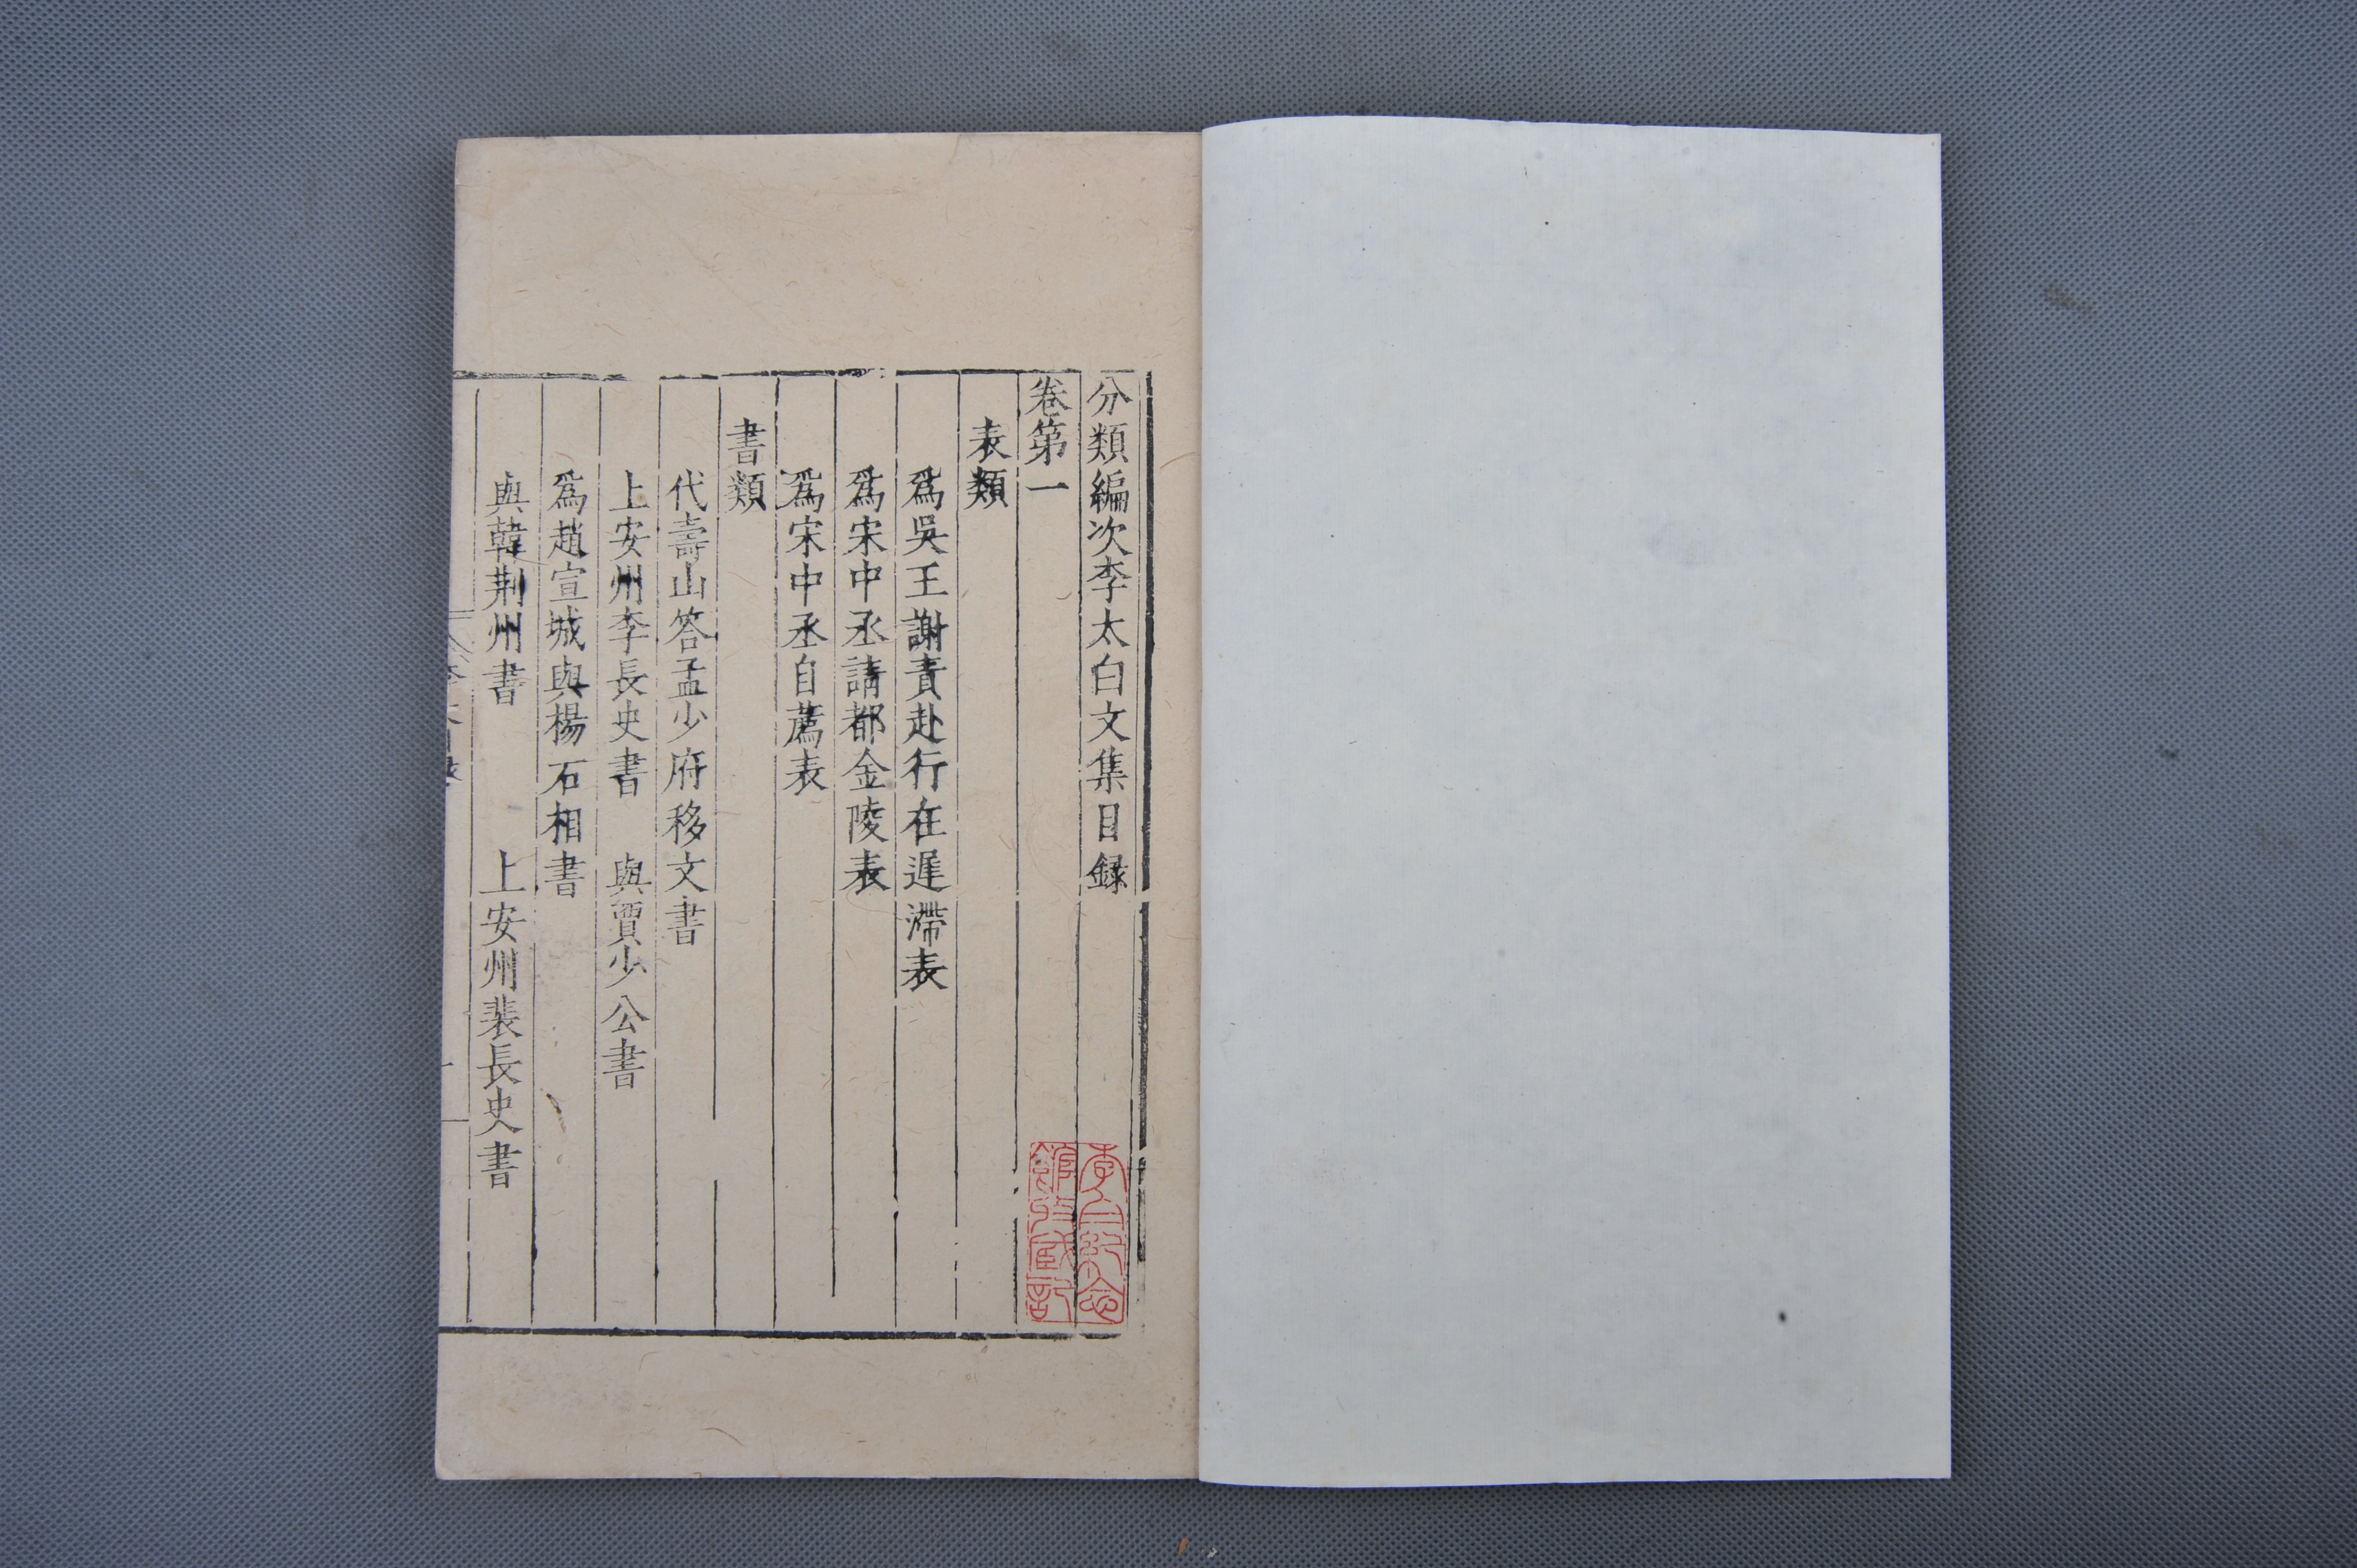 分類編次李太白文集目録
卷第一
表類
爲吳王謝責赴行在遲滯表
爲宋中丞請都金陵表
爲宋中丞自薦表
書類
代壽山答孟少府移文書
上安州李長史書　與賈少公書
爲趙宣城與楊石相書
與韓荆州書　上安州裴長史書
李白紀念
館珍藏記